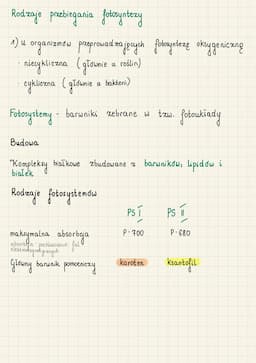 Rodzaje przebiegania fotosyntezy
1) u organizmów przeprowadzających fotosyntezę oksygeniczną
- niecykliczna (głównie u roślin)
- cykliczna (głównie u bakterii)
Fotosystemy - barwniki zebrane w tzw. fotoukłady
Budowa
"Kompleksy białkowe zbudowane z barwników, lipidów i
białek
Rodzaje fotosystemów
PS I PS II
maksymalna absorbcja P-700 P-680
Główny barwnik pomocniczy karoten ksantofil